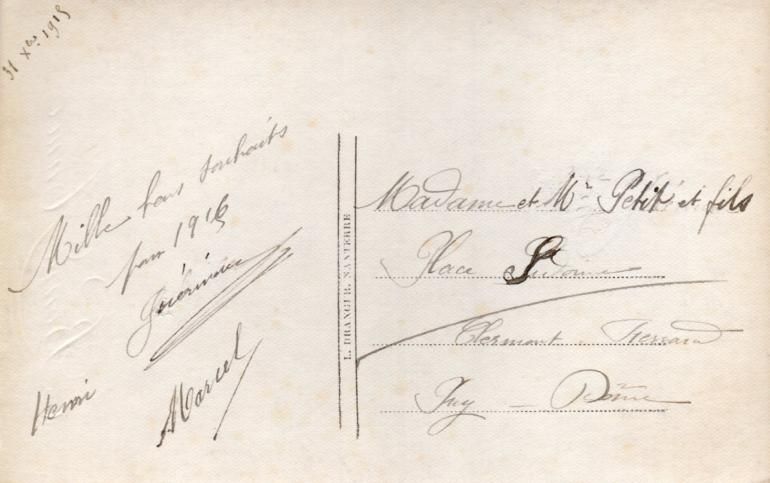 31 Xbre 1915
Mille bons souhaits
pour 1916
Henri
Marcel
L. DRANGUR, NANTERRE
Madame et Mr Petit et fils
Place
Clermont-Ferrand
Puy-Dôme